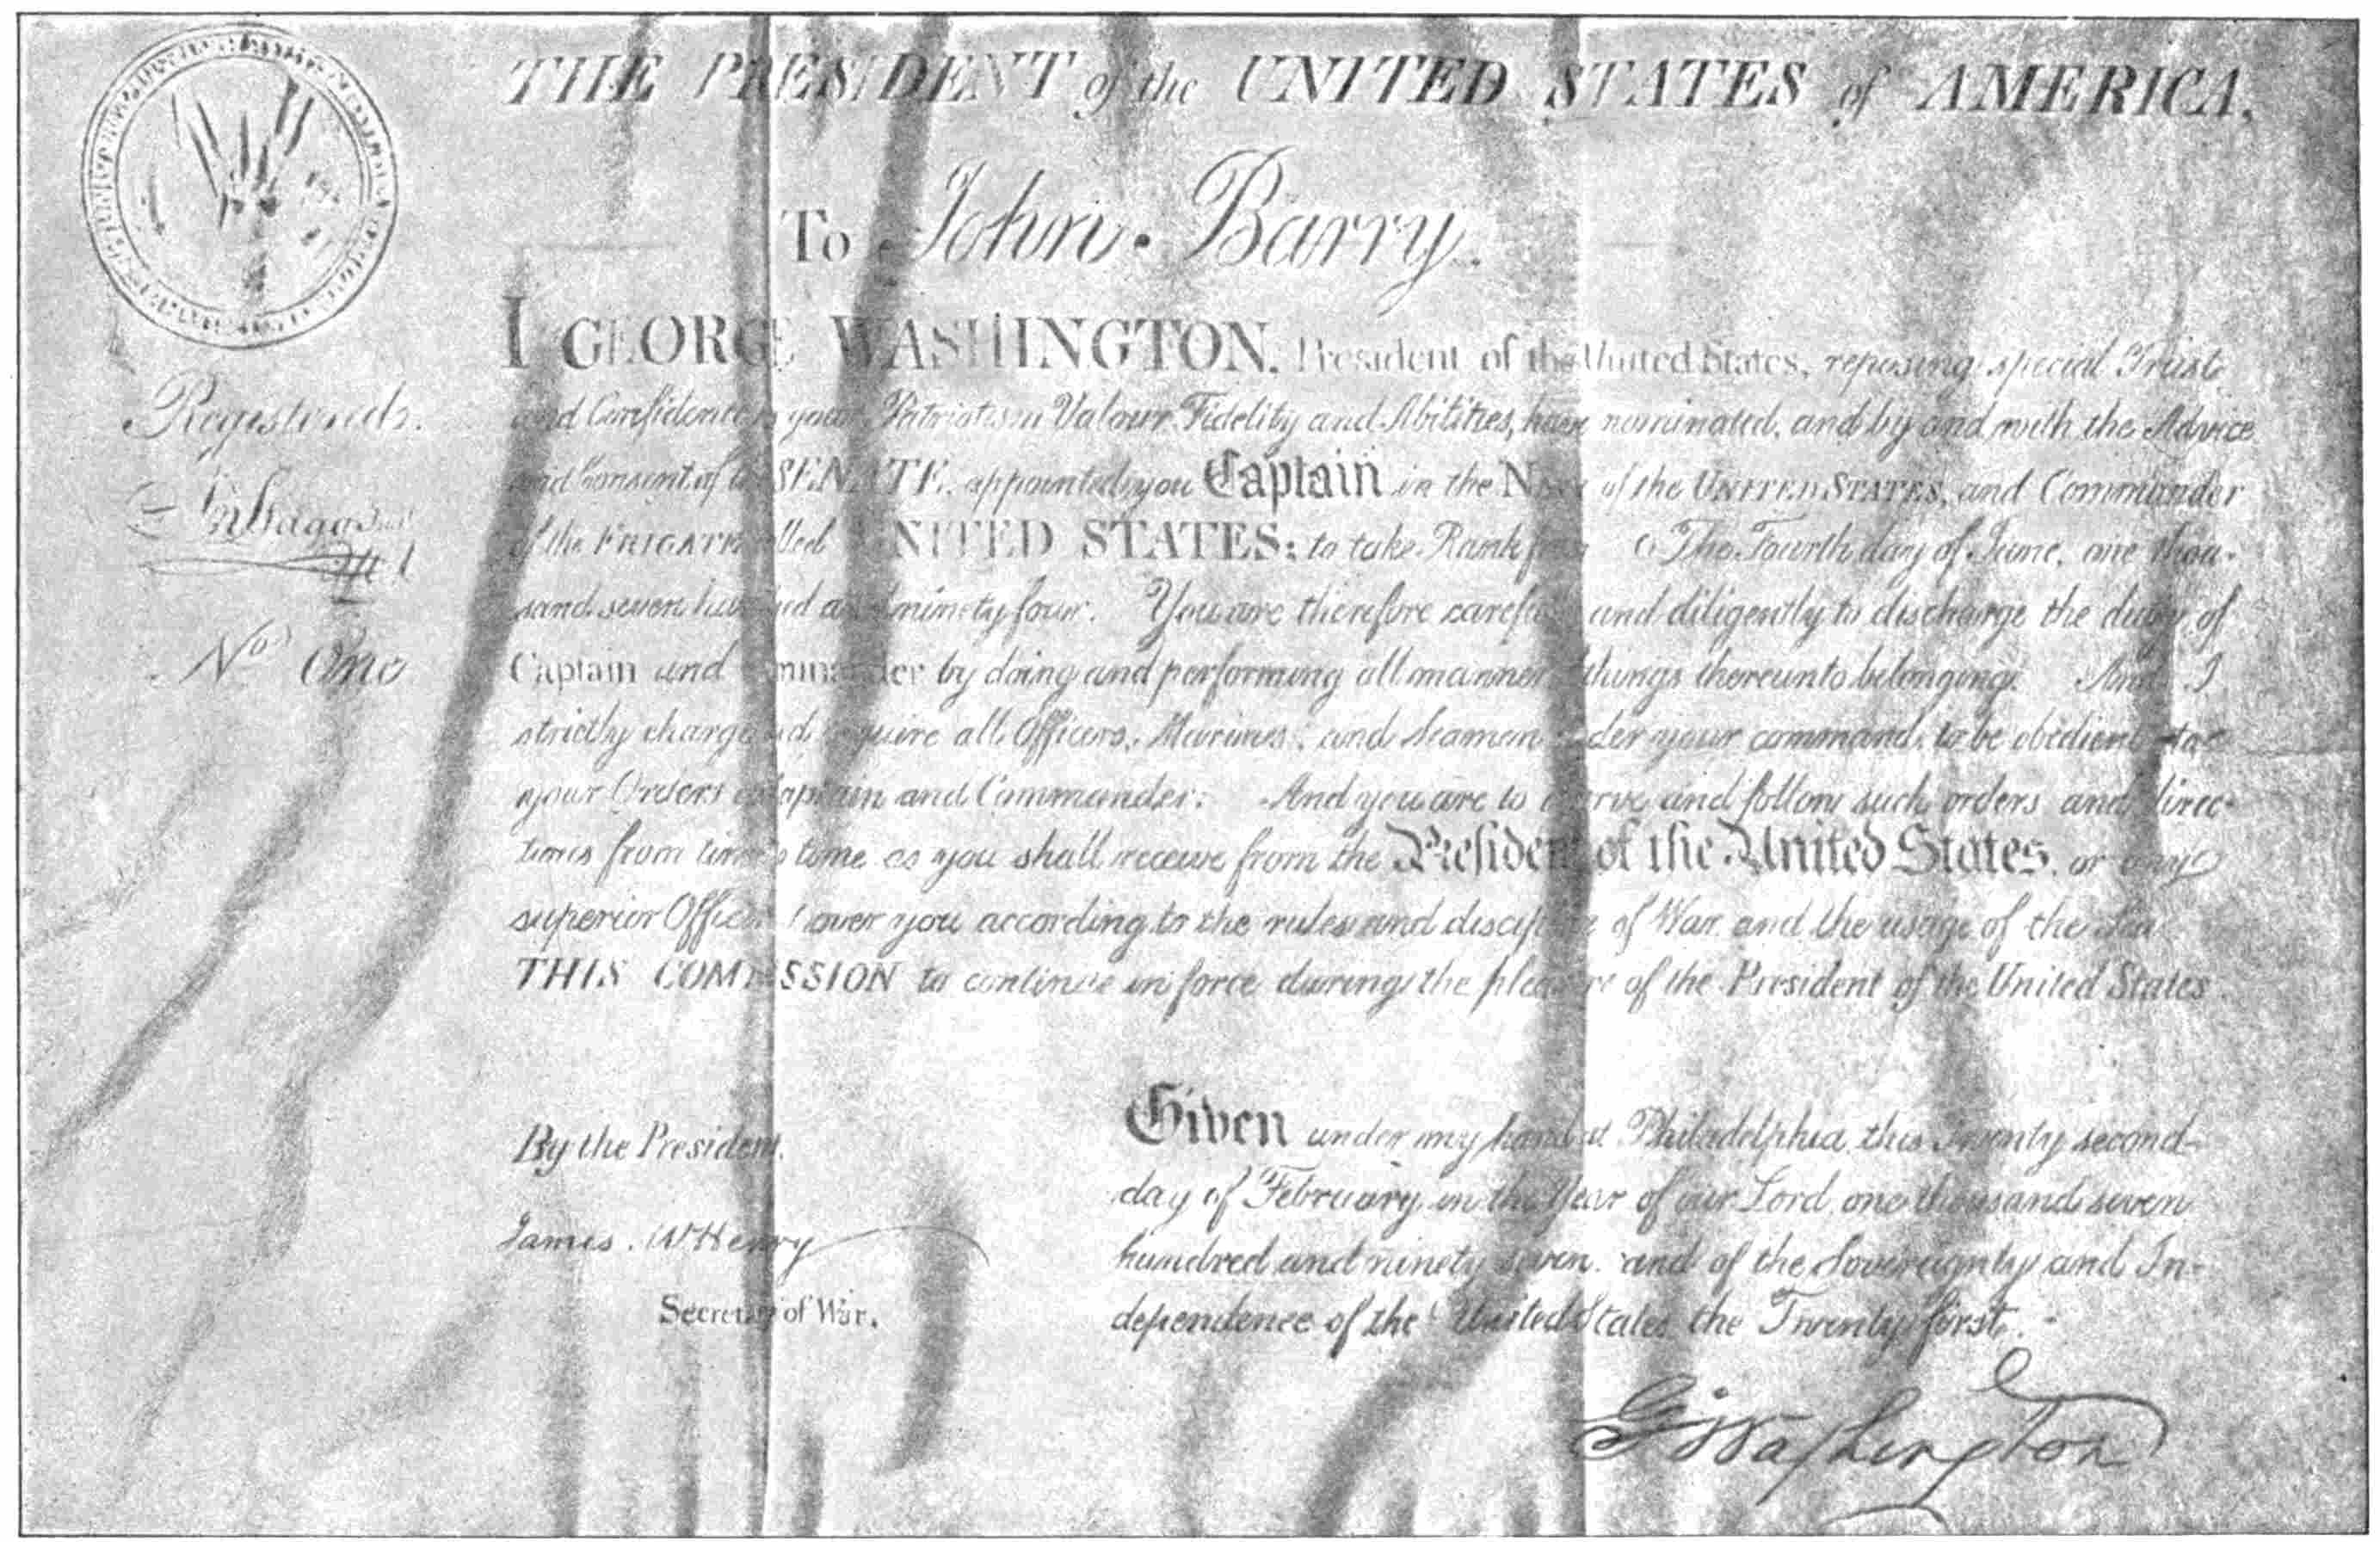 THE PRESIDENT of the UNITED STATES of AMERICA,
To John Barry.
I GEORGE WASHINGTON, President of the United States, reposing special Trust
and Confidence in your Patriotism Valour Fidelity and Abilities, have nominated, and by and with the Advice
and Consent of the SENATE, appointed you Captain in the Navy of the UNITED STATES, and Commander
of the FRIGATE called UNITED STATES: to take Rank from The Fourth day of June, one thou-
sand seven hundred and ninety four. You are therefore carefully and diligently to discharge the duty of
Captain and Commander by doing and performing all manner of things thereunto belonging. And I
strictly charge and require all Officers, Marines, and Seamen under your command, to be obedient to
your Orders as Captain and Commander: And you are to observe and follow such orders and direc-
tions from time to time as you shall receive from the President of the United States, or any
superior Officer over you according to the rules and discipline of War and the usage of the Sea
THIS COMMISSION to continue in force during the pleasure of the President of the United States.
Registered.
No One
By the President.
James McHenry
Secretary of War.
Given under my hand at Philadelphia, this Twenty second
day of February, in the Year of our Lord one thousand seven
hundred and ninety seven. and of the Sovereignty and In-
dependence of the United States the Twenty first.
G Washington